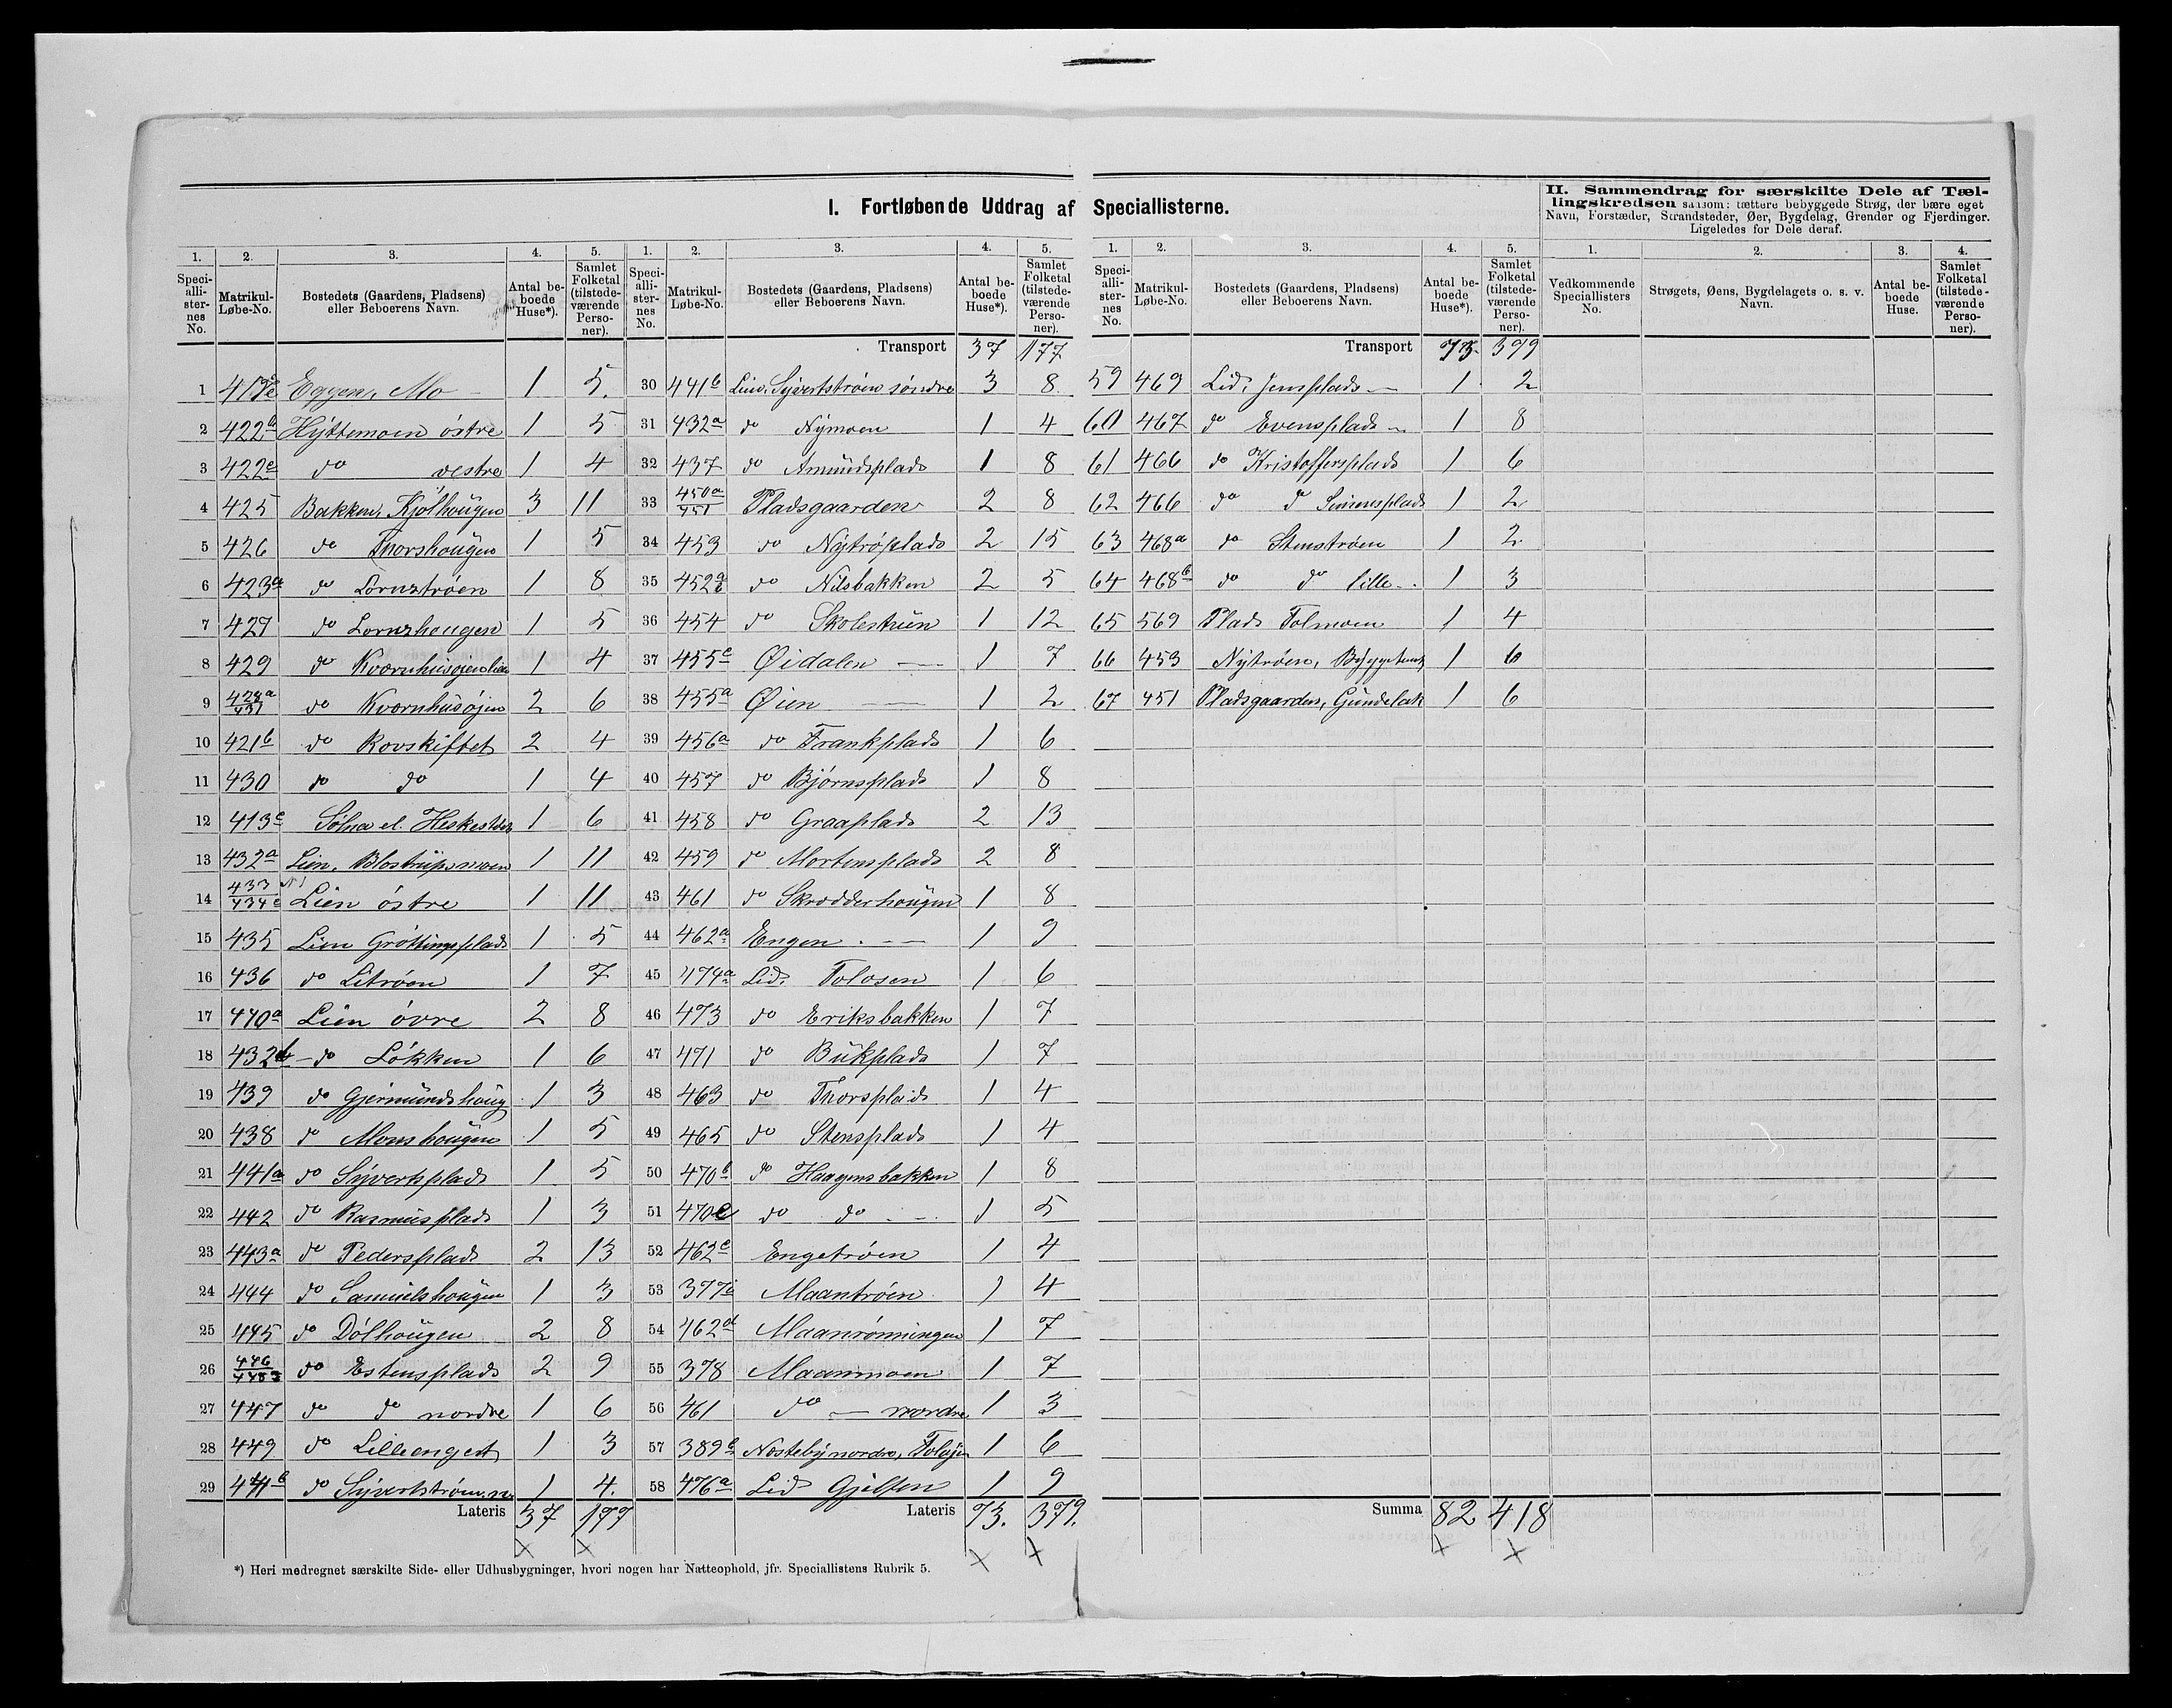 I. Fortløbende Uddrag af Speciallisterne.
II. Sammendrag for særskilte Dele af Tæl-
lingskredsen saasom: tættere bebyggede Strøg, der bære eget
Navn, Forstæder, Strandsteder, Øer, Bygdelag, Grender og Fjerdinger.
Ligeledes for Dele deraf.
1. 2. 3. 4. 5.
Speci-alli-ster-nes No. Matrikul-Løbe-No. Bostedets (Gaardens, Pladsens) eller Beboerens Navn. Antal be-boede Huse*). Samlet Folketal (tilstede-værende Perso-ner).
1 Eggen, Mo 1 5
2 422b Hyttemoen östre 1 5
3 422c do vestre 1 4
4 425 Bakken, Kjölhougen 3 11
5 426 do Thorshougen 1 5
6 423a do Lornztröen 1 8
7 427 do Lornzhougen 1 5
8 429 do 1 4
9 428a/431 do Kvornhusöjen 2 6
10 421b do Rovskiftet 2 4
11 430 do do 1 4
12 413c Sölna el. 1 6
13 432a Lien, Blostrupsmoen 1 11
14 433/434c Lien östre 1 11
15 435 Lien Gröttingsplads 1 5
16 436 do Litröen 1 7
17 440a Lien övre 2 8
18 432b do Lökken 1 6
19 439 do Gjermundshoug 1 3
20 438 do Monshougen 1 5
21 441a do Syverksplads 1 5
22 442 do Rasmusplads 1 3
23 443a do Pedersplads 2 13
24 444 do Samuelshougen 1 3
25 445 do Dölhougen 2 8
26 446 do Estensplads 2 9
27 447 do do nordre 1 6
28 449 do Lilleenget 1 3
29 441b do 1 4.
Lateris 37 177
1. 2. 3. 4. 5.
Speci-alli-ster-nes No. Matrikul-Løbe-No. Bostedets (Gaardens, Pladsens) eller Beboerens Navn. Antal be-boede Huse*). Samlet Folketal (tilstede-værende Perso-ner).
Transport 37 177
30 441b Lien, Syvertströen söndre 3 8
31 432a do Nymoen 1 4
32 437 do Amundsplads 1 8
33 450a/451 Pladsgaarden 2 8
34 453 do Nytröplads 2 15
35 452 do Nilsbakken 2 5
36 454 do Skolestuen 1 12
37 455c Øidalen 1 7
38 455a Øien 1 2
39 456a do Frankplads 1 6
40 457 do Bjørnsplads 1 8
41 458 do Graaplads 2 13
42 459 do Mortensplads 2 8
43 461 do Skrædderhougen 1 8
44 462a Engen 1 9
45 474a Lid, Tolosen 1 6
46 473 do Eriksbakken 1 7
47 471 do Bukplads 1 7
48 463 do Thorsplads 1 4
49 465 do Stensplads 1 4
50 470b do Haagensbakken 1 8
51 470c do do 1 5
52 462c Engetröen 1 4
53 377 Maantröen 1 4
54 462d Maanrönningen 1 7
55 378 Maanmoen 1 7
56 461 do nordre 1 3
57 389c Nostebynordre, 1 6
58 476a Lid 1 9
Lateris 73. 379.
1. 2. 3. 4. 5.
Speci-alli-ster-nes No. Matrikul-Løbe-No. Bostedets (Gaardens, Pladsens) eller Beboerens Navn. Antal be-boede Huse*). Samlet Folketal (tilstede-værende Perso-ner).
Transport 73. 379
59 469 Lid, Jensplads 1 2
60 467 do Evensplads 1 8
61 466 do Kristoffersplads 1 6
62 466 do do Simensplads 1 2
63 468a do Stenströen 1 2
64 468b do do lille 1 3
65 569 Plads Tolmoen 1 4
66 453 Nytröen, 1 6
67 451 Pladsgaarden, Gundelak 1 6
Summa 82 418
1. 2. 3. 4.
Vedkommende Speciallisters No. Strøgets, Øens, Bygdelagets o. s. v. Navn. Antal be-boede Huse. Samlet Folketal (tilstede-værende Perso-ner).
*) Heri medregnet særskilte Side- eller Udhusbygninger, hvori nogen har Natteophold, jfr. Speciallistens Rubrik 5.